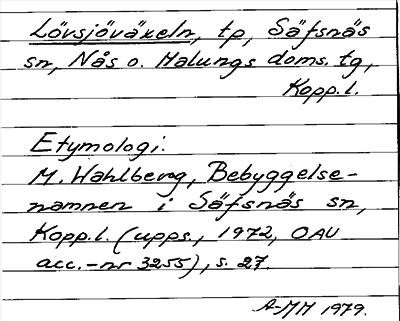 Lövsjöväxeln, tp, Säfsnäs
sn, Nås o. Malungs doms. tg,
Kopp.l.
Etymologi:
M. Wahlberg, Bebyggelse-
namnen i Säfsnäs sn,
Kopp.l. (upps., 1972, OAU
acc.-nr 3255), s. 27.
A-MM 1979.